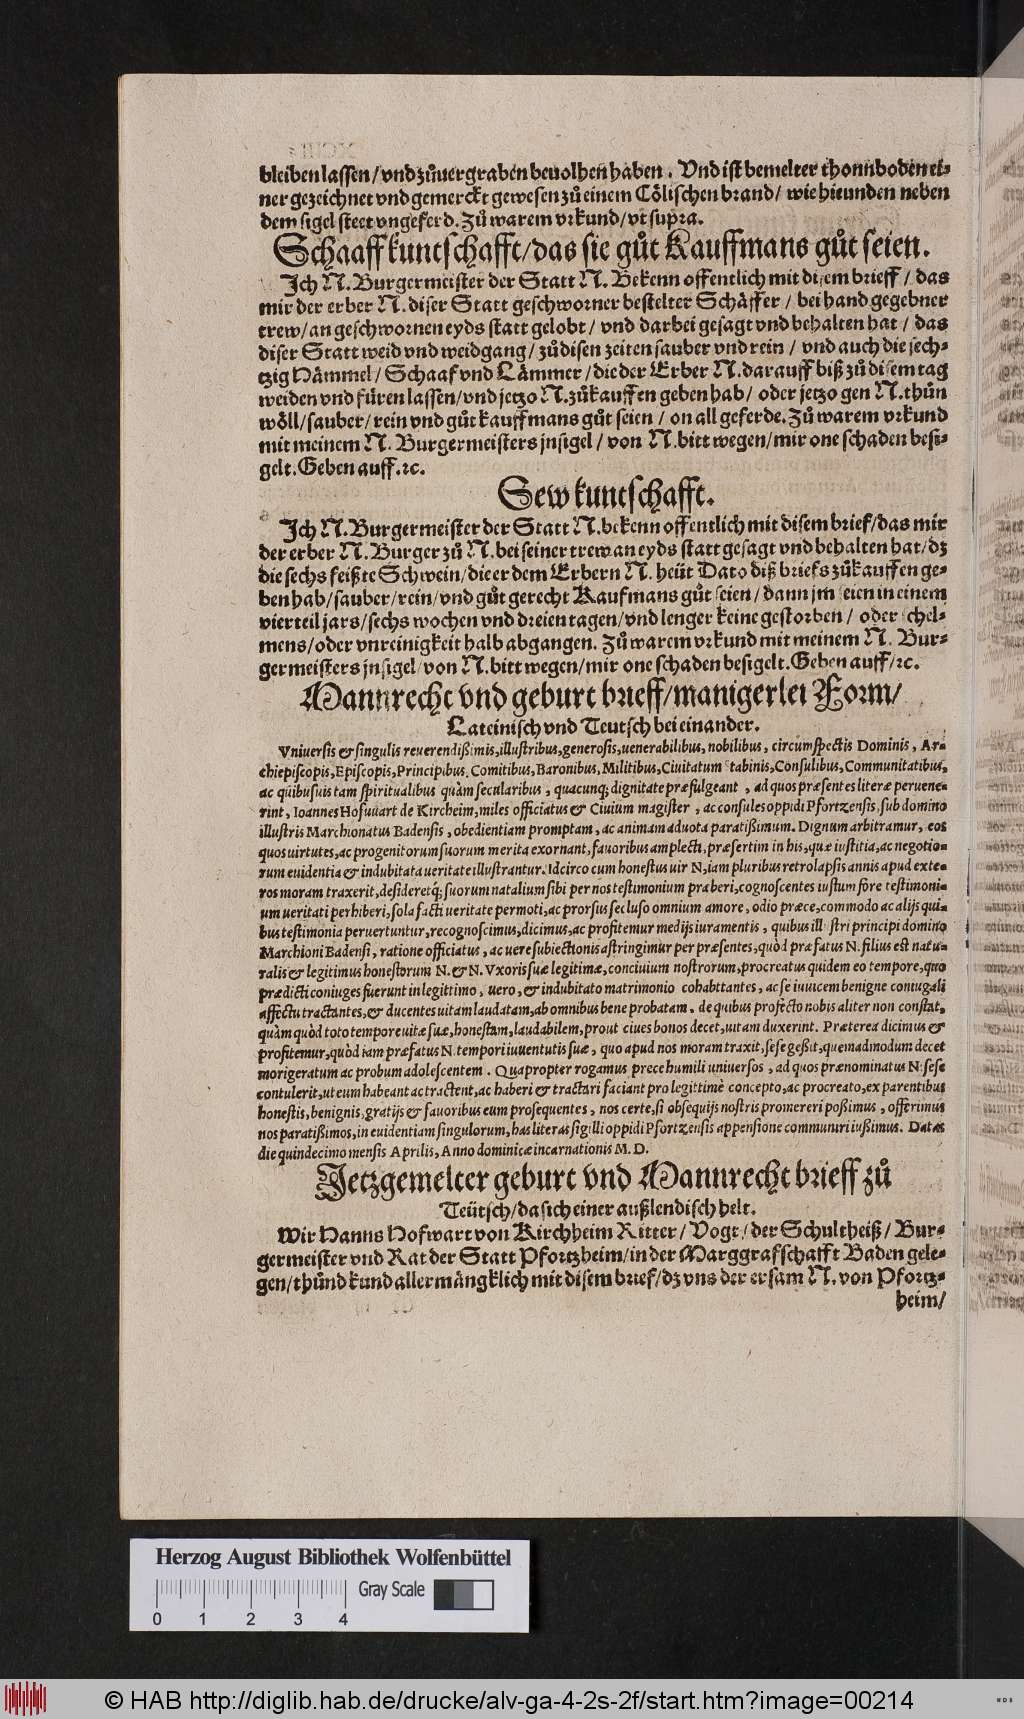 bleiben lassen/ vnd zůuergraben beuolhen haben. Vnd ist bemelter thonnboden ei-
ner gezeichnet vnd gemerckt gewesen zů einem Cölischen brand/ wie hieunden neben
dem sigel steet vngeferd. Zů warem vrkund/ vt supra.
Schaaff kuntschafft/ das sie gůt Kauffmans gůt seien.
Ich N. Burgermeister der Statt N. Bekenn offentlich mit disem brieff/ das
mir der erber N. diser Statt geschworner bestelter Schäffer/ bei hand gegebner
trew/ an geschwornen eyds statt gelobt/ vnd darbei gesagt vnd behalten hat/ das
diser Statt weid vnd weidgang/ zů disen zeiten sauber vnd rein/ vnd auch die sech-
tzig Hämmel/ Schaaf vnd Lämmer/ die der Erber N. darauff biß zů disem tag
weiden vnd füren lassen/ vnd jetzo N. zůkauffen geben hab/ oder jetzo gen N. thůn
wöll/ sauber/ rein vnd gůt kauffmans gůt seien/ on all geferde. Zů warem vrkund
mit meinem N. Burgermeisters jnsigel/ von N. bitt wegen/ mir one schaden besi-
gelt. Geben auff. ꝛc.
Sew kuntschafft.
Ich N. Burgermeister der Statt N. bekenn offentlich mit disem brief/ das mir
der erber N. Burger zů N. bei seiner trew an eyds statt gesagt vnd behalten hat/ dz
die sechs feißte Schwein/ die er dem Erbern N. heüt Dato diß briefs zůkauffen ge-
ben hab/ sauber/ rein/ vnd gůt gerecht Kaufmans gůt seien/ dann jm seien in einem
vierteil jars/ sechs wochen vnd dreien tagen/ vnd lenger keine gestorben/ oder schel-
mens/ oder vnreinigkeit halb abgangen. Zů warem vrkund mit meinem N. Bur-
germeisters jnsigel/ von N. bitt wegen/ mir one schaden besigelt. Geben auff/ ꝛc.
Mannrecht vnd geburt brieff/ manigerlei Form/
Lateinisch vnd Teutsch bei einander.
Vniuersis & singulis reuerendißimis, illustribus, generosis, uenerabilibus, nobilibus, circumspectis Dominis, Ar-
chiepiscopis, Episcopis, Principibus, Comitibus, Baronibus, Militibus, Ciuitatum Scabinis, Consulibus, Communitatibus,
ac quibusuis tam spiritualibus quàm secularibus, quacunq; dignitate præfulgeant, ad quos præsentes literæ peruene-
rint, Ioannes Hofuuart de Kircheim, miles officiatus & Ciuium magister, ac consules oppidi Pfortzensis, sub domino
illustris Marchionatus Badensis, obedientiam promptam, ac animam aduota paratißimum. Dignum arbitramur, eos
quos uirtutes, ac progenitorum suorum merita exornant, fauoribus amplecti, præsertim in his, quæ iustitia, ac negotio-
rum euidentia & indubitata ueritate illustrantur. Idcirco cum honestus uir N, iam pluribus retrolapsis annis apud exte-
ros moram traxerit, desideretq; suorum natalium sibi per nos testimonium præberi, cognoscentes iustum fore testimoni-
um ueritati perhiberi, sola facti ueritate permoti, ac prorsus secluso omnium amore, odio præce, commodo ac alijs qui-
bus testimonia peruertuntur, recognoscimus, dicimus, ac profitemur medijs iuramentis, quibus illustri principi domino
Marchioni Badensi, ratione officiatus, ac uere subiectionis astringimur per præsentes, quòd præfatus N. filius est natu-
ralis & legitimus honestorum N. & N. Vxoris suæ legitimæ, conciuium nostrorum, procreatus quidem eo tempore, quo
prædicti coniuges fuerunt in legittimo, uero, & indubitato matrimonio cohabitantes, ac se inuicem benigne coniugali
affectu tractantes, & ducentes uitam laudatam, ab omnibus bene probatam. de quibus profecto nobis aliter non constat,
quàm quòd toto tempore uitæ suæ, honestam, laudabilem, prout ciues bonos decet, uitam duxerint. Præterea dicimus &
profitemur, quòd iam præfatus N. tempori iuuentutis suæ, quo apud nos moram traxit, sese geßit, quemadmodum decet
morigeratum ac probum adolescentem. Quapropter rogamus prece humili uniuersos, ad quos prænominatus N. sese
contulerit, ut eum habeant ac tractent, ac haberi & tractari faciant pro legittimè concepto, ac procreato, ex parentibus
honestis, benignis, gratijs & fauoribus eum prosequentes, nos certe, si obsequijs nostris promereri poßimus, offerimus
nos paratißimos, in euidentiam singulorum, has literas sigilli oppidi Pfortzensis appensione communiri iußimus. Datas
die quindecimo mensis Aprilis, Anno dominicæ incarnationis M. D.
Jetzgemelter geburt vnd Mannrecht brieff zů
Teütsch/ da sich einer außlendisch helt.
Wir Hanns Hofwart von Kirchheim Ritter/ Vogt/ der Schultheiß/ Bur-
germeister vnd Rat der Statt Pfortzheim/ in der Marggrafschafft Baden gele-
gen/ thůnd kund aller mängklich mit disem brief/ dz vns der ersam N. von Pfortz-
heim/
Herzog August Bibliothek Wolfenbüttel
Gray Scale
0 1 2 3 4
© HAB http://diglib.hab.de/drucke/alv-ga-4-2s-2f/start.htm?image=00214